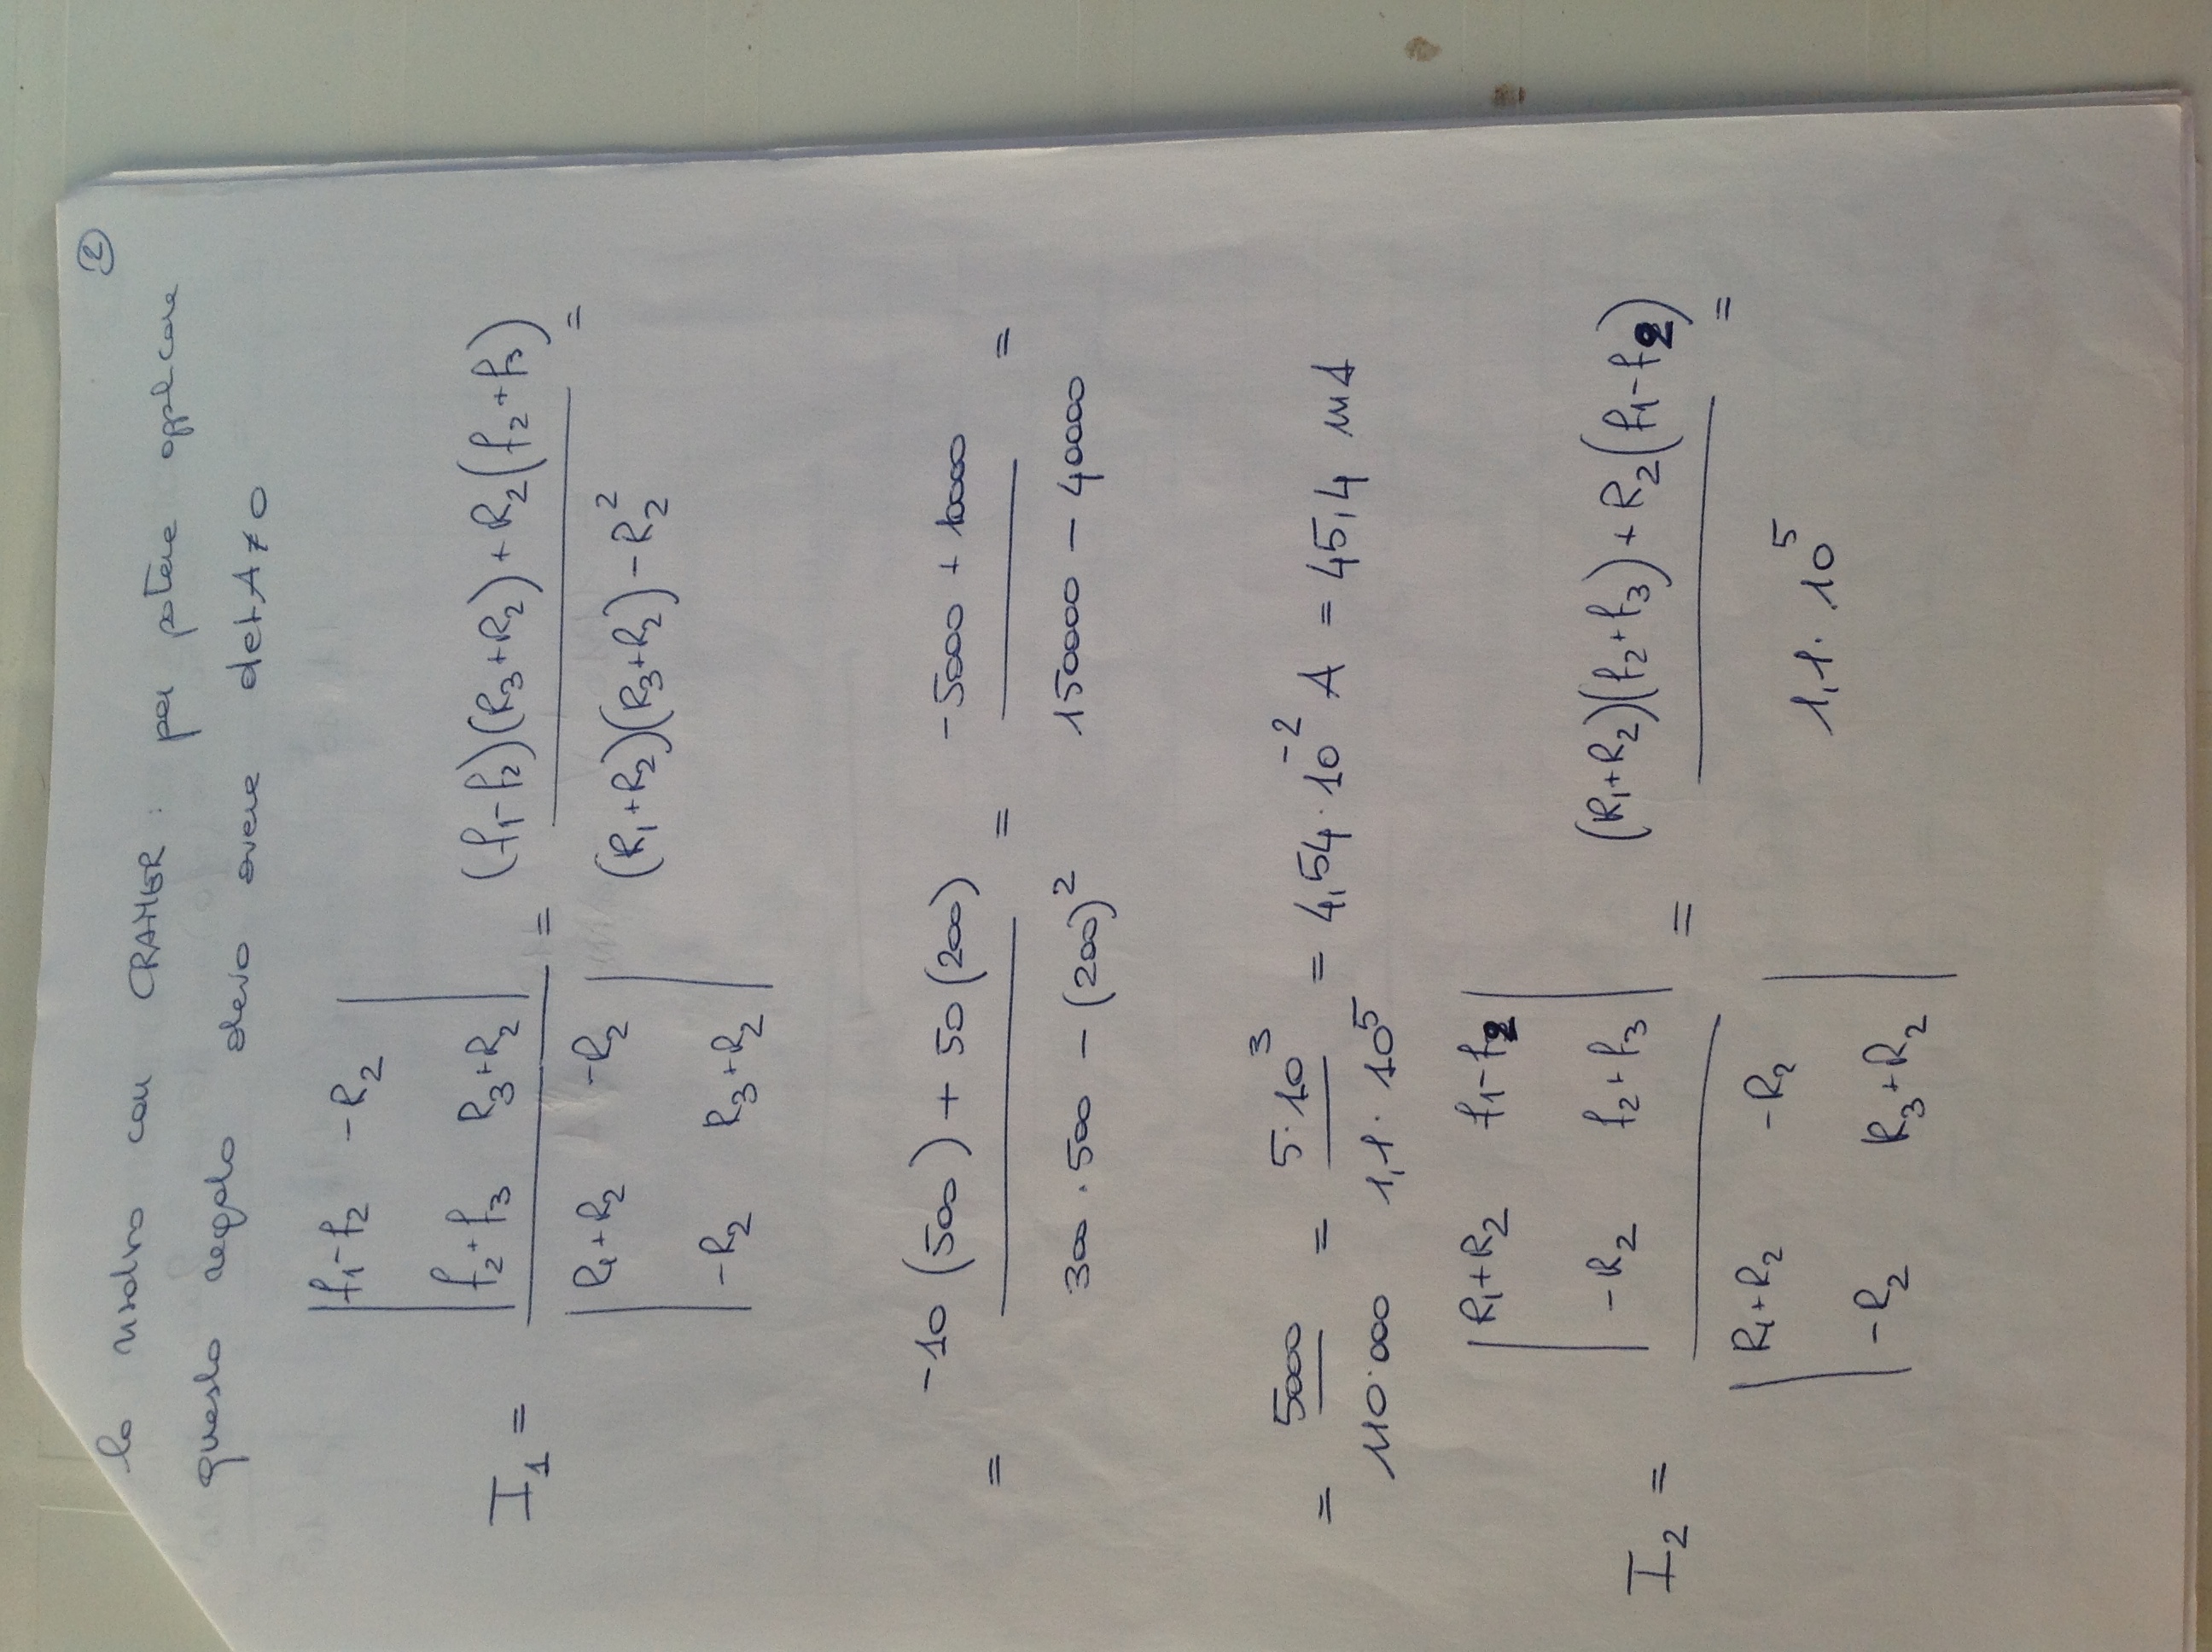 ②
lo risolvo con CRAMER: per potere applicare
questa regola devo avere det A ≠ 0
I₁ = |f₁-f₂ -R₂ ; f₂+f₃ R₃+R₂| / |R₁+R₂ -R₂ ; -R₂ R₃+R₂| = (f₁-f₂)(R₃+R₂)+R₂(f₂+f₃) / (R₁+R₂)(R₃+R₂)-R₂² =
= -10(500)+50(200) / 300·500-(200)² = -5000+10000 / 150000-40000 =
= 5000 / 110·000 = 5·10³ / 1,1·10⁵ = 4,54·10⁻² A = 45,4 mA
I₂ = |R₁+R₂ f₁-f₂ ; -R₂ f₂+f₃| / |R₁+R₂ -R₂ ; -R₂ R₃+R₂| = (R₁+R₂)(f₂+f₃)+R₂(f₁-f₂) / 1,1·10⁵ =